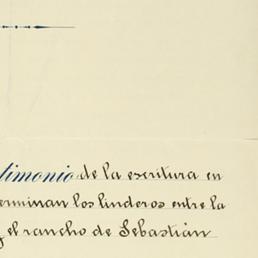 timonio de la escritura en
erminan los linderos entre la
y el rancho de Sebastián